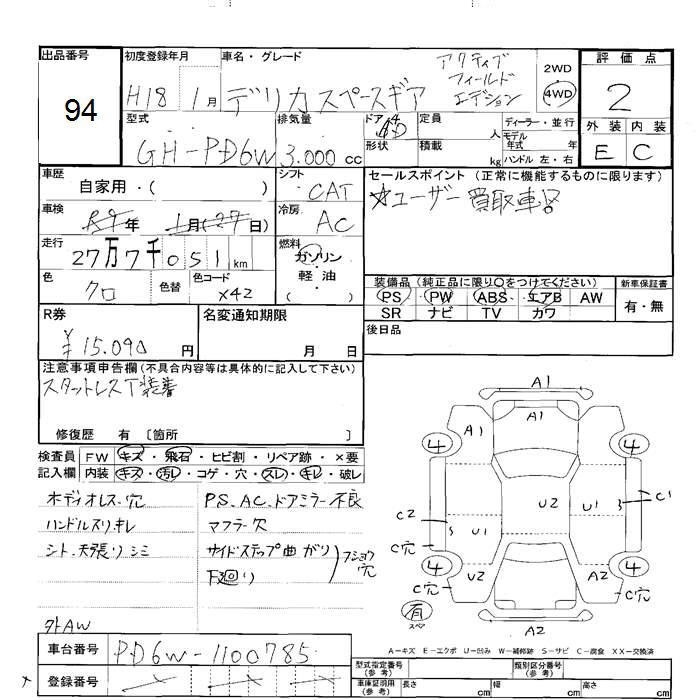 出品番号
94
初度登録年月
H18 1月
車名・グレード
デリカスペースギア
アクティブ
フィールド
エデション
2WD
4WD
評価点
2
外装 内装
E C
型式
GH-PD6W
排気量
3.000cc
ドア 4
形状
定員 人
積載 kg
ディーラー・並行
モデル
年式 年
ハンドル 左・右
車歴
自家用・( )
シフト
CAT
セールスポイント(正常に機能するものに限ります)
☆ユーザー買取車☆
車検
R9年 1月(27日)
冷房
AC
走行
27万7千051km
燃料
ガソリン
軽・油
( )
色
クロ
色替
色コード
X42
装備品(純正品に限り○をつけてください)
PS PW ABS エアB AW
SR ナビ TV カワ
新車保証書
有・無
R券
¥15.090円
名変通知期限
月 日
後日品
注意事項申告欄(不具合内容等は具体的に記入して下さい)
スタットレスT装着
修復歴 有〔箇所 〕
検査員
記入欄
FW キズ・飛石・ヒビ割・リペア跡・×要
内装 キズ・汚レ・コゲ・穴・スレ・キレ・破レ
ホディオレス.穴
ハンドルスリ.キレ
シト.天張りシミ
外AW
PS、AC、ドアミラー不良
マフラー穴
サイドステップ曲がり
下回り
フショク
穴
A1
A1
A1
4
4
C2
S
U1
U2
U1
S
C1
C穴
C穴
4
4
U2
A2
C穴
C穴
有
スペア
A2
A-キズ E-エクボ U-凹み W-補修跡 S-サビ C-腐食 XX-交換済
車台番号
PD6W-1100785
登録番号
型式指定番号
(参考)
類別区分番号
(参考)
車庫証明用
(参考)
長さ cm
幅 cm
高さ cm